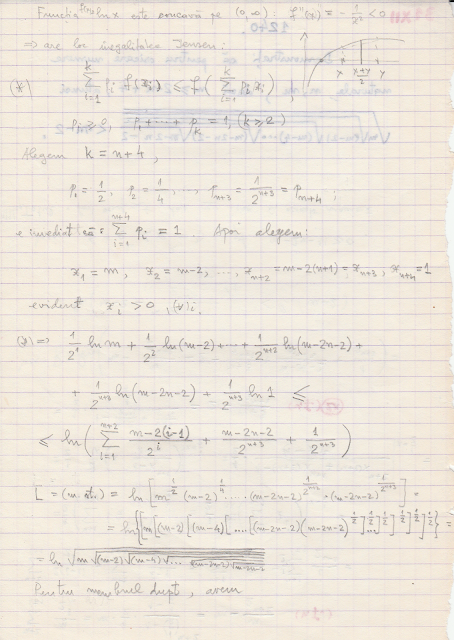 Funcția f(x)=ln x este concavă pe (0,∞): f''(x) = -1/x² < 0
=> are loc inegalitatea Jensen:
(*) ∑_{i=1}^{k} p_i f(x_i) ≤ f(∑_{i=1}^{k} p_i x_i)
x x+y/2 y
p_i ≥ 0, p_1+⋯+p_k = 1, (k≥2)
Alegem k = n+4,
p_1 = 1/2, p_2 = 1/4, ..., p_{n+3} = 1/2^{n+3} = p_{n+4};
e imediat că: ∑_{i=1}^{n+4} p_i = 1. Apoi alegem:
x_1 = m, x_2 = m-2, ..., x_{n+2} = m-2(n+1) = x_{n+3}, x_{n+4} = 1
evident x_i > 0, (∀)i.
(*) => 1/2^1 ln m + 1/2^2 ln(m-2) + ⋯ + 1/2^{n+2} ln(m-2n-2) +
+ 1/2^{n+3} ln(m-2n-2) + 1/2^{n+3} ln 1 ≤
≤ ln(∑_{i=1}^{n+2} m-2(i-1)/2^i + m-2n-2/2^{n+3} + 1/2^{n+3})
= ln[m^{1/2}(m-2)^{1/4}....(m-2n-2)^{1/2^{n+2}}·(m-2n-2)^{1/2^{n+3}}] =
= ln{[m[(m-2)[(m-4)[....[(m-2n-2)(m-2n-2)^{1/2}]^{1/2}...]^{1/2}]^{1/2}]^{1/2}]^{1/2}} =
= ln √m√(m-2)√(m-4)√... √(m-2n-2)√m-2n-2
Pentru membrul drept, avem